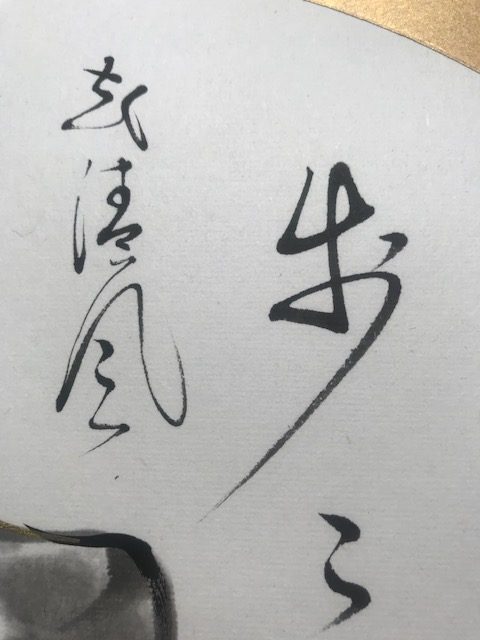 歩々
起清風